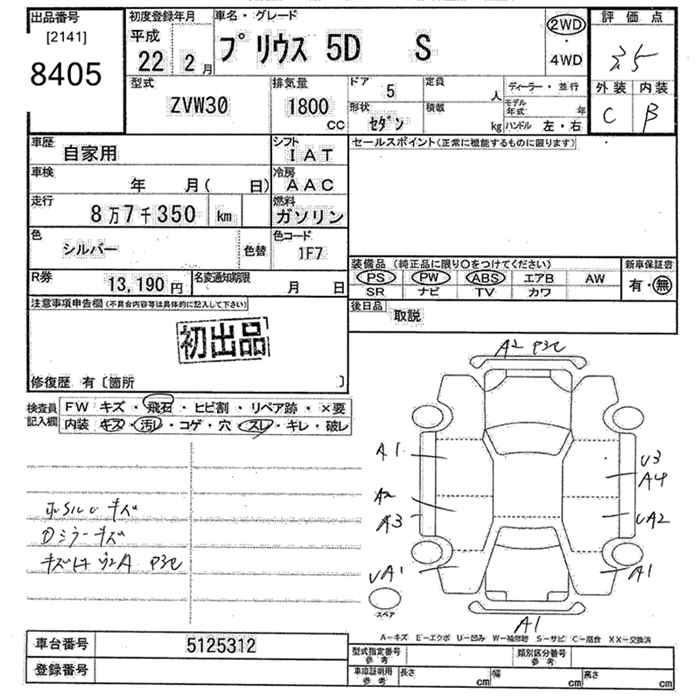 出品番号
[2141]
8405
初度登録年月
平成
22年 2月
車名・グレード
プリウス 5D S
2WD
・
4WD
評価点
3.5
外装 内装
C B
型式
ZVW30
排気量
1800
CC
ドア
5
形状
セダン
定員
人
積載
kg
ディーラー・並行
モデル年式 年
ハンドル 左・右
車歴
自家用
シフト
IAT
車検
年 月( 日)
冷房
AAC
走行
8万7千350 km
燃料
ガソリン
色
シルバー
色替
色コード
1F7
R券
13,190円
名変通知期限
月 日
セールスポイント(正常に機能するものに限ります)
装備品 (純正品に限り○をつけてください)
PS PW ABS エアB AW
SR ナビ TV カワ
新車保証書
有・無
後日品
取説
注意事項申告欄(不具合内容等は具体的に記入して下さい)
初出品
修復歴 有〔箇所 〕
検査員記入欄
FW キズ・飛石・ヒビ割・リペア跡・×要
内装 キズ・汚レ・コゲ・穴・スレ・キレ・破レ
キズ
Dミラーキズ
A2 P3C
A1
A2
A3
UA1
U3
A4
UA2
A1
A1
スペア
A-キズ E-エクボ U-凹み W-補修跡 S-サビ C-腐食 XX-交換済
車台番号
5125312
登録番号
型式指定番号
参考
類別区分番号
参考
車庫証明用
参考
長さ cm
幅 cm
高さ cm